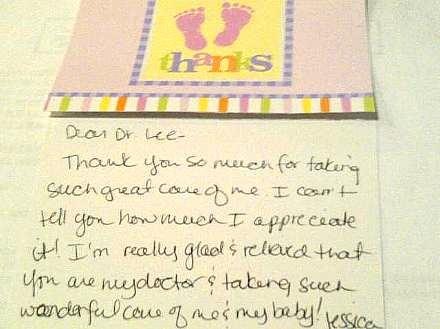 thanks
Dear Dr Lee-
Thank you so much for taking
such great care of me. I can't
tell you how much I appreceate
it! I'm really glad & relieved that
you are my doctor & taking such
wonderful care of me & my baby! Jessica